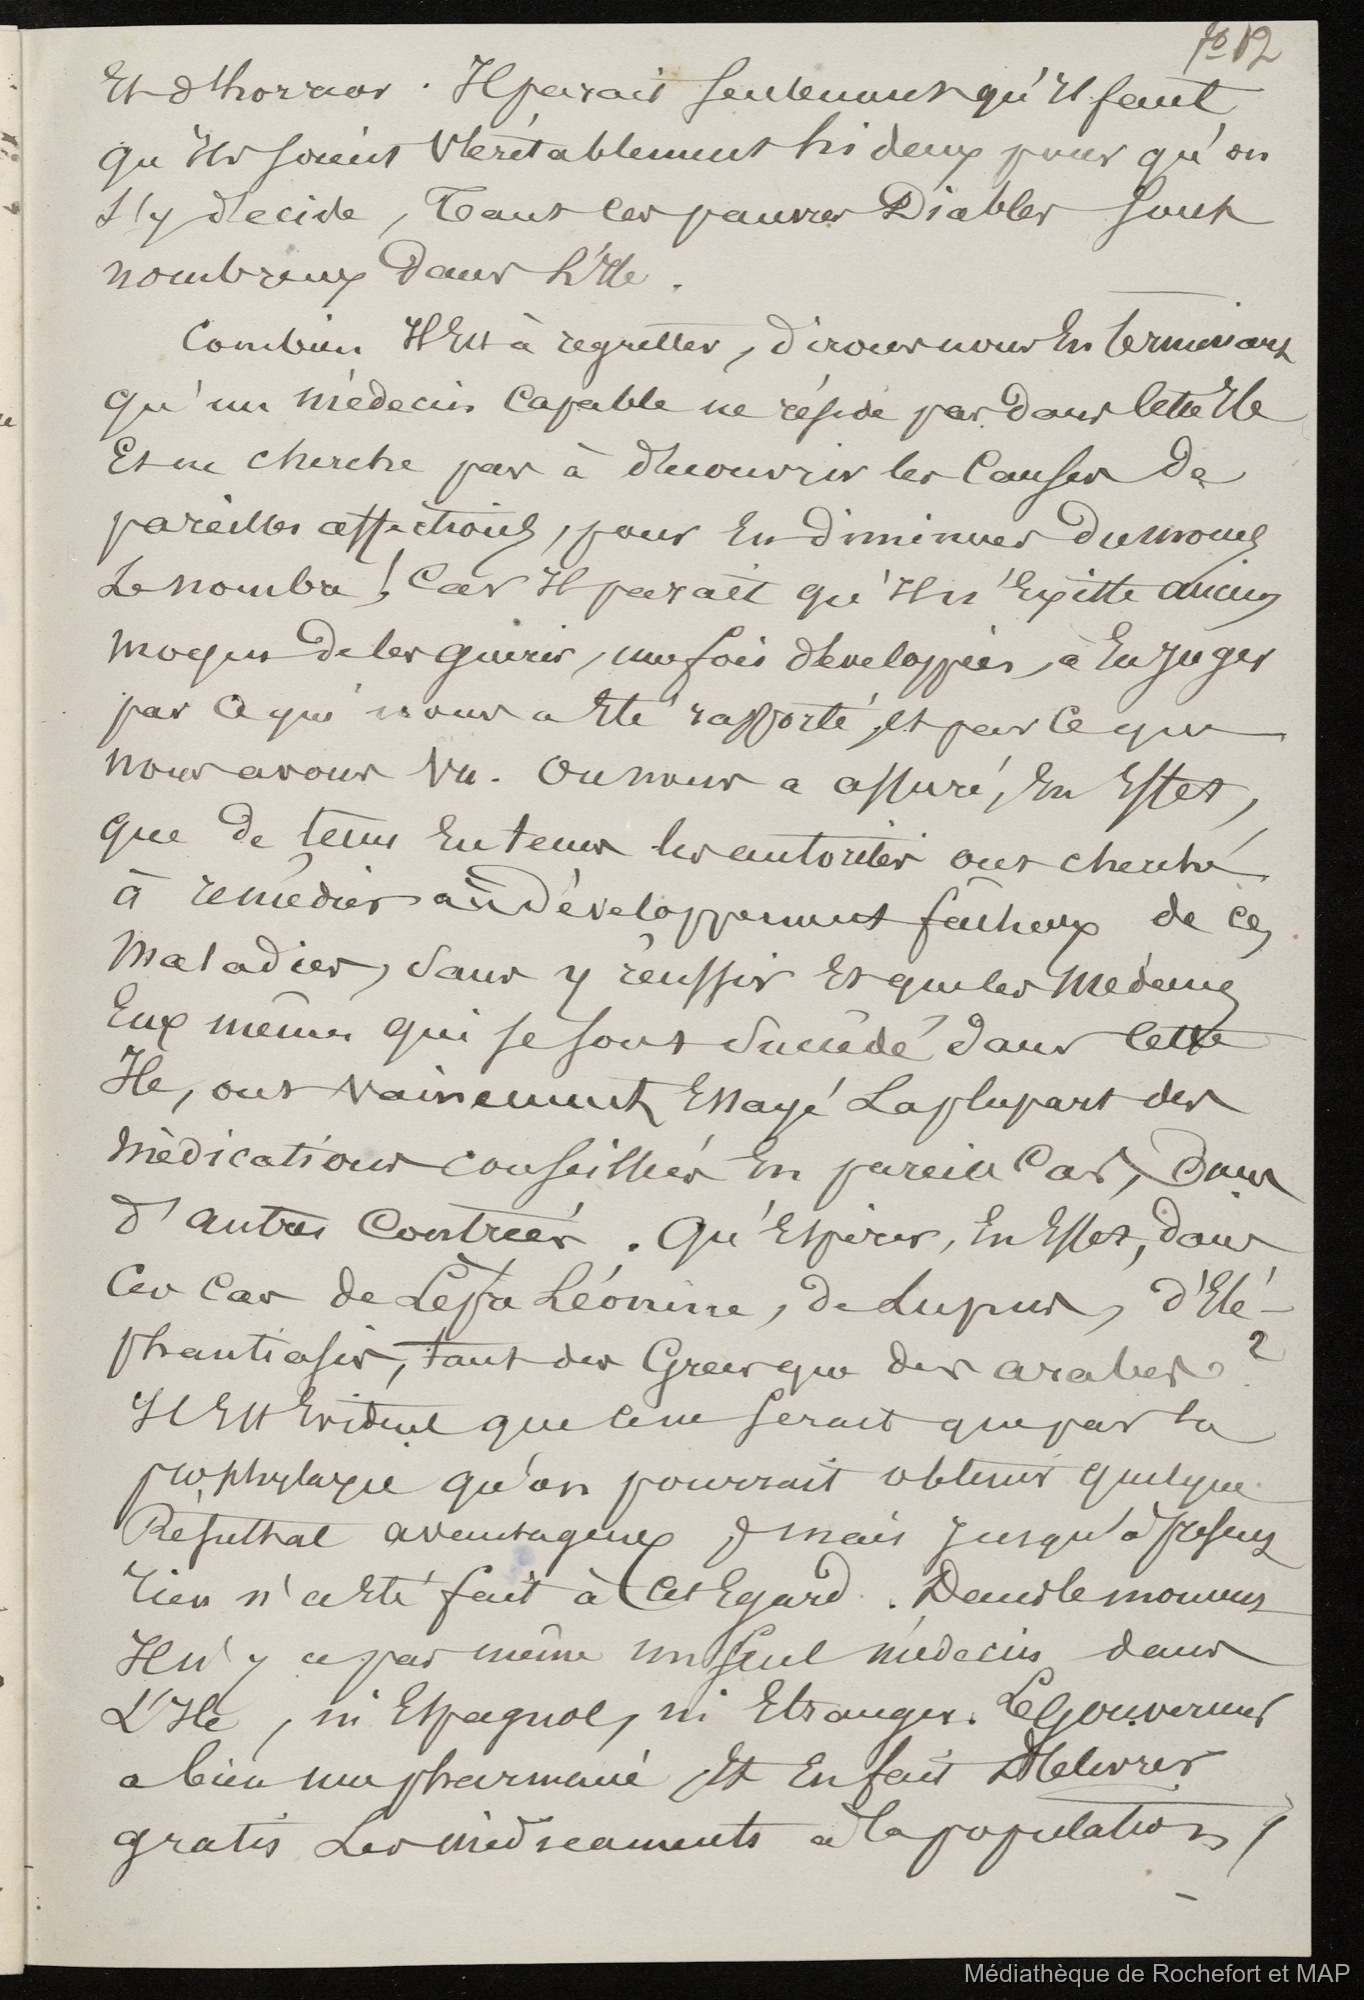 fo 12
Et d'horreur. Il parait seulement qu'il faut
qu'ils soient véritablement hideux pour qu'on
s'y décide, tant ces pauvres Diables sont
nombreux dans l'Ile.
Combien Il Est à regretter, dirons nous En terminant
qu'un médecin capable ne réside pas dans cette Ile
Et ne cherche pas à découvrir les causes de
pareilles affections, pour En diminuer du moins
Le nombre! Car Il parait qu'Il n'Existe aucun
moyen de les guérir, une fois développées, à En juger
par ce qui nous a Eté rapporté, et par ce que
nous avons vu. On nous a assuré, En Effet,
que de tems En tems les autorités ont cherché
à remédier au développement fâcheux de ces
maladies, sans y réussir Et que les médecins
Eux mêmes qui se sont succédé dans cette
Ile, ont vainement Essayé La plupart des
médications conseillées En pareil cas, dans
d'autres contrées. Qu'Espérer, En Effet, dans
ces cas de Lèpre Léonine, de Lupus, d'Elé-
phantiasis, tant des Grecs que des arabes?
Il Est Evident que ce ne serait que par la
prophylaxie qu'on pourrait obtenir quelque
Résultat avantageux, mais jusqu'à présent
rien n'a Eté fait à cet Egard. Dans le moment
Il n'y a pas même un seul médecin dans
L'Ile, ni Espagnol, ni Etranger. Le Gouverneur
a bien une pharmacie Et En fait délivrer
gratis Les médicaments à la population,
Médiathèque de Rochefort et MAP